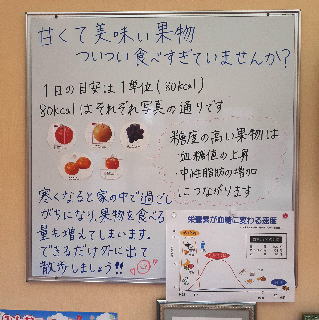 甘くて美味い果物
ついつい食べすぎていませんか?
1日の目安は1単位(80kcal)
80kcalはそれぞれ写真の通りです
糖度の高い果物は
血糖値の上昇
中性脂肪の増加
につながります
寒くなると家の中で過ごし
がちになり、果物を食べる
量も増えてしまいます。
できるだけ外に出て
散歩しましょう!!
栄養素が血糖に変わる速度